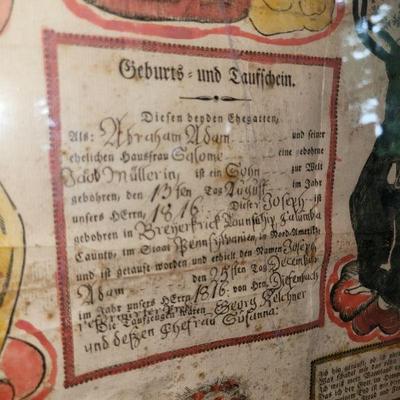 Geburts- und Taufschein.
Diesen beyden Ehegatten,
Als: Abraham Adam und seiner
ehelichen Hausfrau Salome eine gebohrne
Jacob Müllerin, ist ein Sohn zur Welt
gebohren, den 13ten Tag August im Jahr
unsers HErrn, 1816. Dieser Joseph ist
gebohren in Breyerkrick Taunschip Calumba
Caunty, im Staat Pennsylvanien in Nord-Amerika;
und ist getauft worden und erhielt den Namen Joseph
Adam den 25sten Tag December
im Jahr unsers HErrn 1816. von Hrn. Diefenbach
reformirter
Die Taufzeugen waren Georg Kelchner
und deßen Ehefrau Susanna: